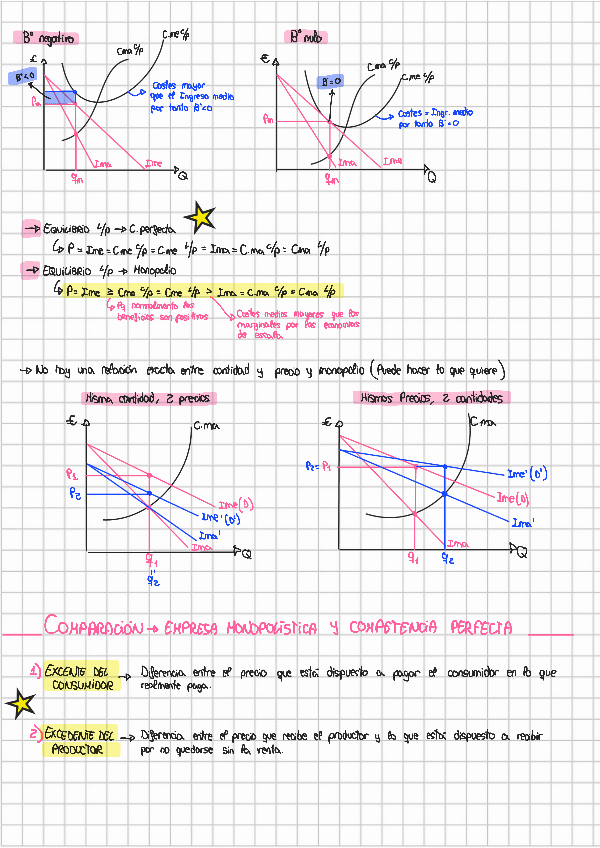 Bº negativo
Bº nulo
€
C.ma c/p
C.me c/p
Bº<0
Pm
Costes mayor
que el Ingreso medio
por tanto Bº<0
Ima
Ime
Q
qm
€
C.ma c/p
C.me c/p
Bº=0
Pm
Costes = Ingr. medio
por tanto Bº=0
Ima
Ime
Q
qm
→ EQUILIBRIO L/p → C. perfecta
↳ P = Ime = C.me c/p = C.me L/p = Ima = C.ma c/p = C.ma L/p
→ EQUILIBRIO L/p → Monopolio
↳ P = Ime ≥ Cme c/p = Cme L/p > Ima = C.ma c/p = C.ma L/p
↳ Pq normalmente los
beneficios son positivos
Costes medios mayores que los
marginales por las economías
de escala
→ No hay una relación exacta entre cantidad y precio y monopolio (Puede hacer lo que quiere)
Misma cantidad, 2 precios
Mismos Precios, 2 cantidades
€
C.ma
P1
P2
Ime (D)
Ime' (D')
Ima'
Ima
Q
q1
q2
€
C.ma
P2 = P1
Ime' (D')
Ime (D)
Ima'
Ima
Q
q1
q2
COMPARACIÓN → EMPRESA MONOPOLÍSTICA Y COMPETENCIA PERFECTA
1) EXCENTE DEL
CONSUMIDOR
→ Diferencia entre el precio que está dispuesto a pagar el consumidor en lo que
realmente paga.
2) EXCEDENTE DEL
PRODUCTOR
→ Diferencia entre el precio que recibe el productor y lo que está dispuesto a recibir
por no quedarse sin la renta.